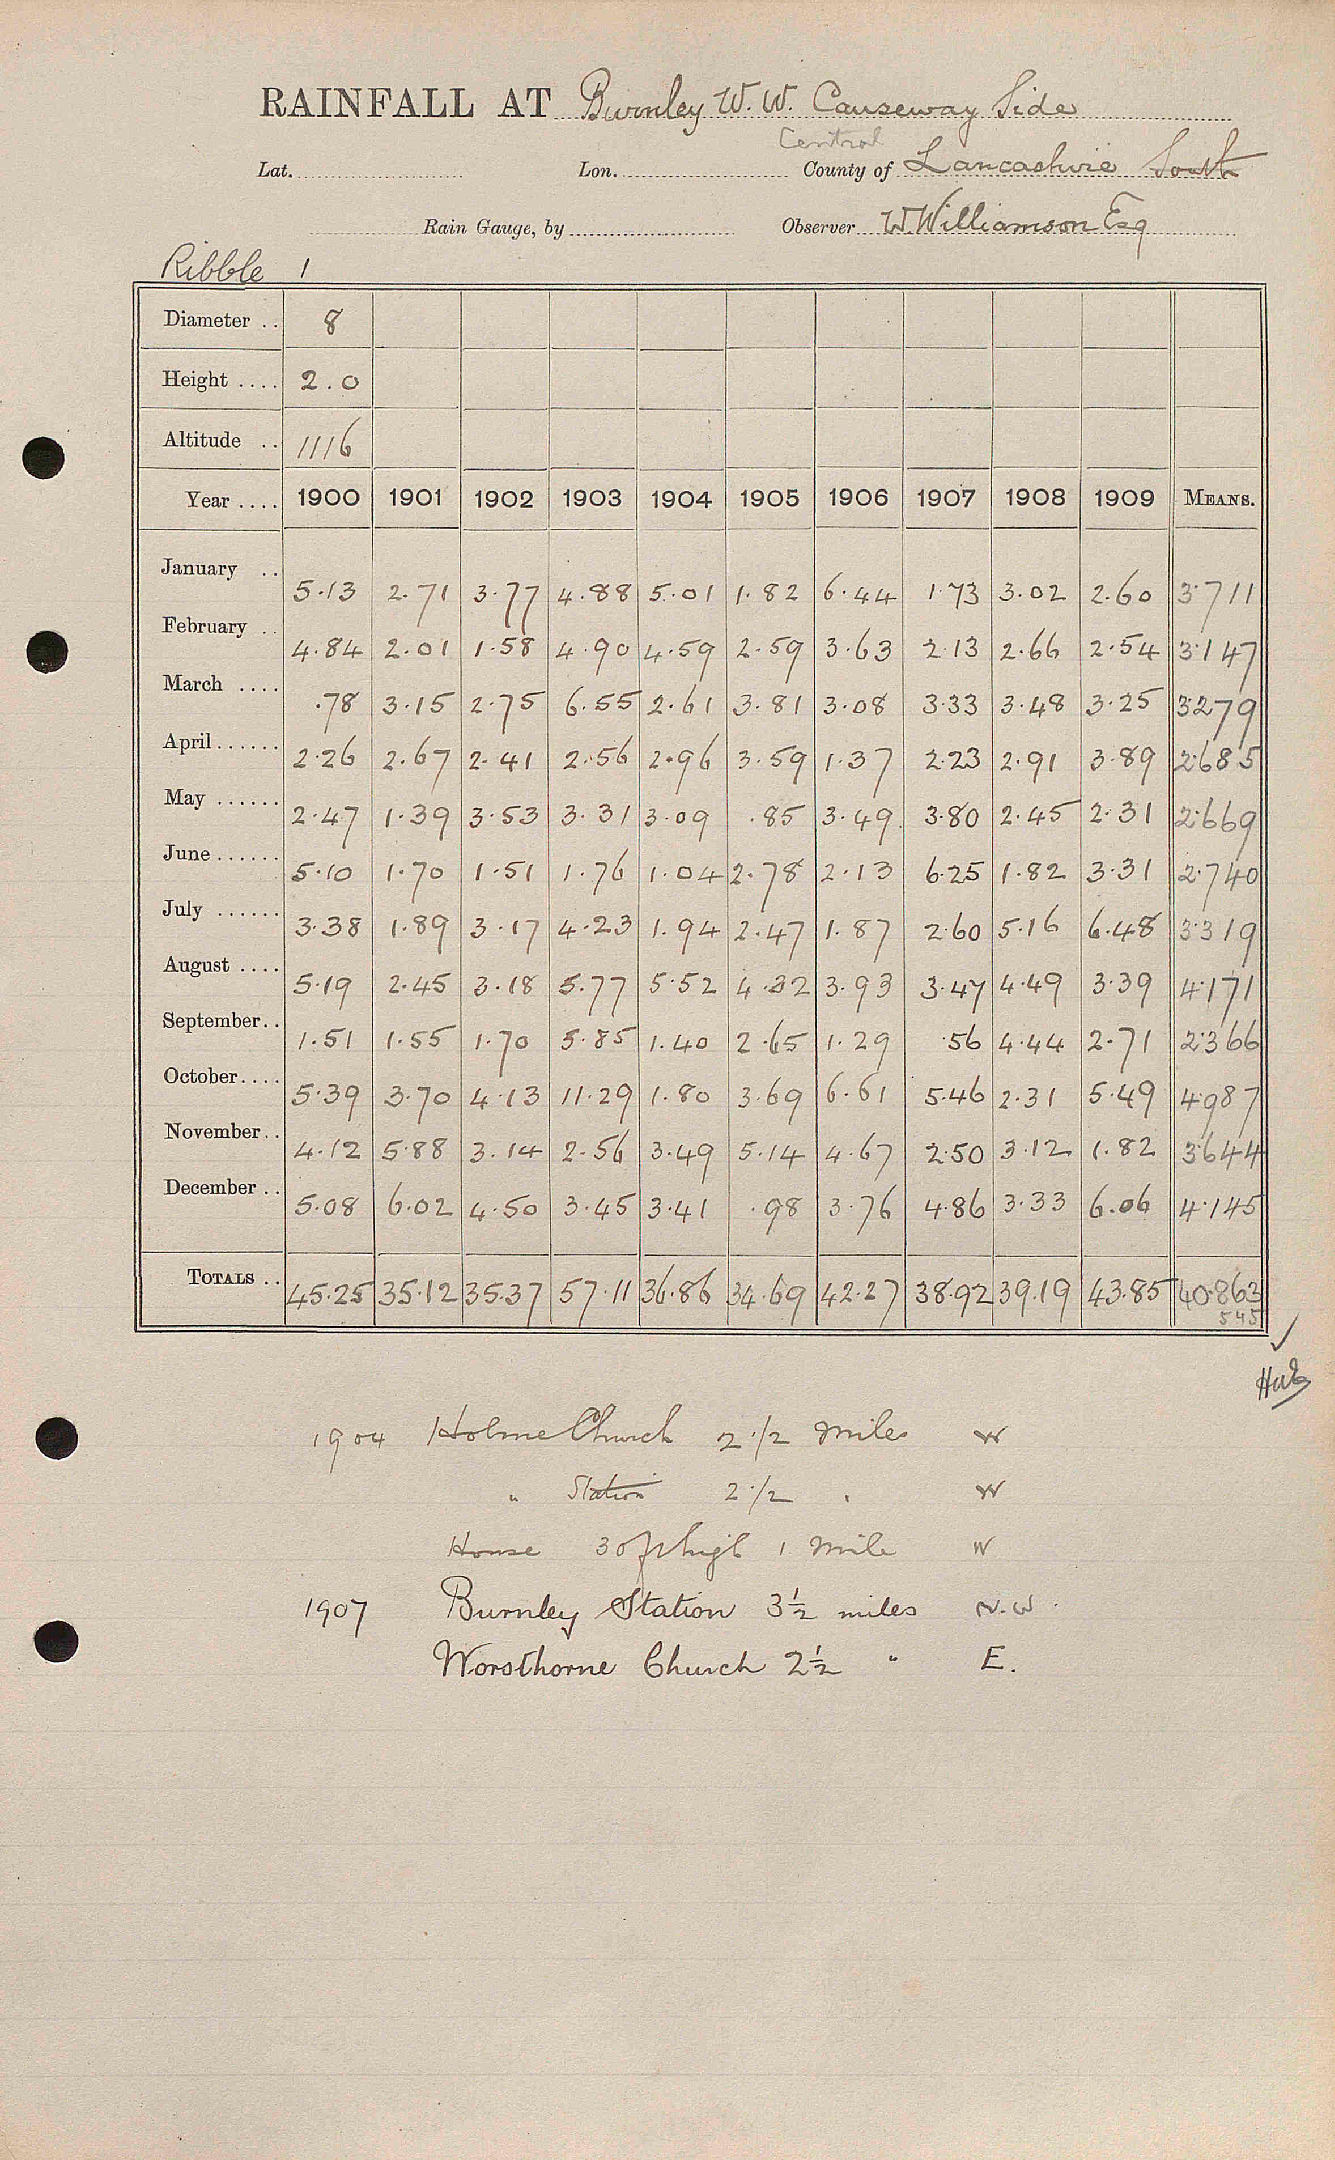 RAINFALL AT Burnley W. W. Causeway Side
Central
Lat. Lon. County of Lancashire South
Rain Gauge, by Observer W. Williamson Esq
Ribble 1
Diameter .. 8
Height .... 2.0
Altitude .. 1116
Year .... 1900 1901 1902 1903 1904 1905 1906 1907 1908 1909 MEANS.
January .. 5.13 2.71 3.77 4.88 5.01 1.82 6.44 1.73 3.02 2.60 3.711
February .. 4.84 2.01 1.58 4.90 4.59 2.59 3.63 2.13 2.66 2.54 3.147
March .... .78 3.15 2.75 6.55 2.61 3.81 3.08 3.33 3.48 3.25 3.279
April...... 2.26 2.67 2.41 2.56 2.96 3.59 1.37 2.23 2.91 3.89 2.685
May ...... 2.47 1.39 3.53 3.31 3.09 .85 3.49 3.80 2.45 2.31 2.669
June...... 5.10 1.70 1.51 1.76 1.04 2.78 2.13 6.25 1.82 3.31 2.740
July ...... 3.38 1.89 3.17 4.23 1.94 2.47 1.87 2.60 5.16 6.48 3.319
August .... 5.19 2.45 3.18 5.77 5.52 4.32 3.93 3.47 4.49 3.39 4.171
September.. 1.51 1.55 1.70 5.85 1.40 2.65 1.29 .56 4.44 2.71 2.366
October.... 5.39 3.70 4.13 11.29 1.80 3.69 6.61 5.46 2.31 5.49 4.987
November.. 4.12 5.88 3.14 2.56 3.49 5.14 4.67 2.50 3.12 1.82 3.644
December .. 5.08 6.02 4.50 3.45 3.41 .98 3.76 4.86 3.33 6.06 4.145
TOTALS .. 45.25 35.12 35.37 57.11 36.86 34.69 42.27 38.92 39.19 43.85 40.863
545
1904 Holme Church 2 1/2 miles W
" Station 2 1/2 " W
House 30 ft high 1 mile W
1907 Burnley Station 3½ miles N.W.
Worsthorne Church 2½ " E.